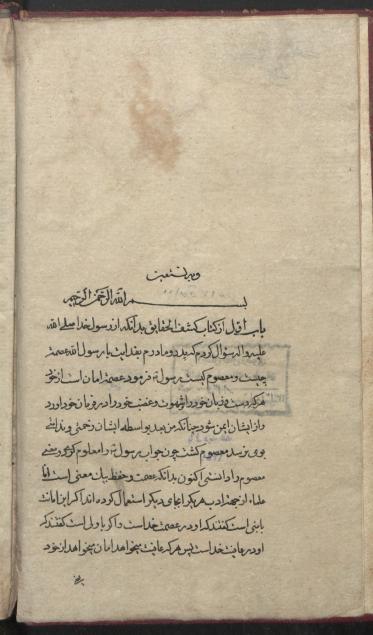 وبه نستعین
بسم الله الرحمن الرحیم
باب اول از کتاب کشف الحقایق بدانکه از رسول خدا صلی الله
علیه واله سؤال کردم که پدر و مادرم بفدایت یا رسول الله عصمة
چیست و معصوم کیست رسول فرمود عصمة امان است از خوف
هرکه دست و زبان خود را و شهوت و غضب خود را در فرمان خود اورد
و از ایشان ایمن شود چنانکه من بعد بواسطه ایشان زحمتی و ندامتی
بوی نرسد معصوم کشت چون جواب رسول را معلوم کردی و معنی
معصوم را دانستی اکنون بدانکه عصمت و حفظ یک معنی است اما
علماء از جهة ادب هر یکرا بجای دیکر استعمال کرده اند اکر این امان
با نبی است کفتند که او در عصمت خداست و اکر با ولی است کفتند که
او در حفظ خداست پس هرکه عافیت میخواهد امان میخواهد از خود